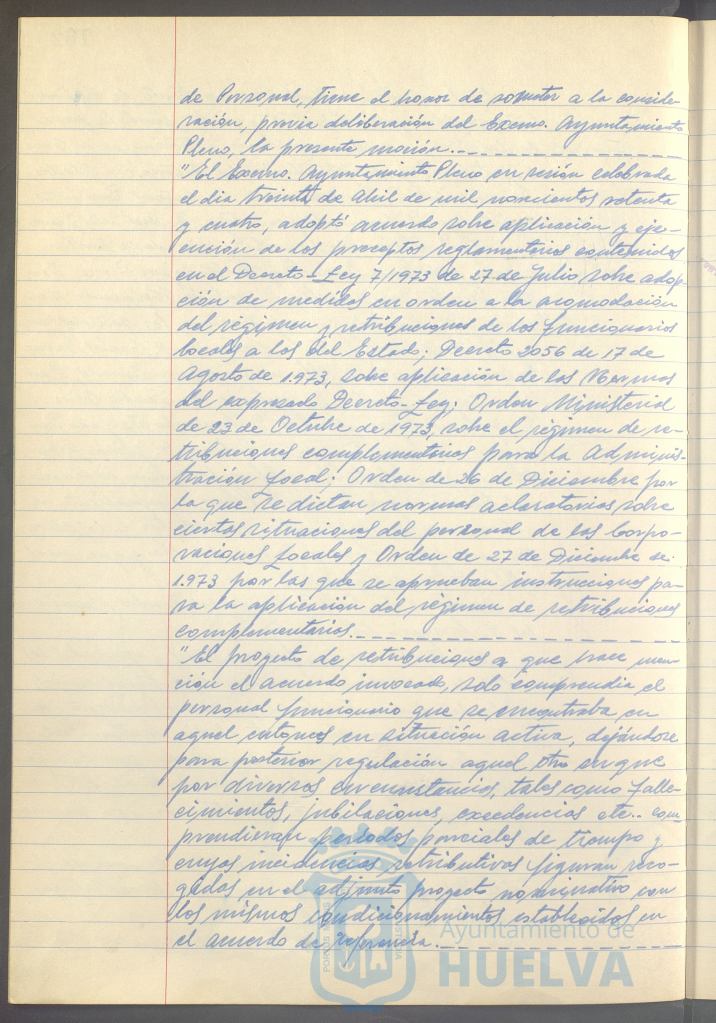 de Personal, tiene el honor de someter a la conside-
ración, previa deliberación del Excmo. Ayuntamiento
Pleno, la presente moción.
"El Excmo. Ayuntamiento Pleno en sesión celebrada
el dia treinta de Abril de mil novecientos setenta
y cuatro, adoptó acuerdo sobre aplicación y eje-
cución de los preceptos reglamentarios contenidos
en el Decreto-Ley 7/1973 de 27 de Julio sobre adop-
ción de medidas en orden a la acomodación
del régimen y retribuciones de los funcionarios
locales a los del Estado; Decreto 2056 de 17 de
Agosto de 1.973, sobre aplicación de las Normas
del expresado Decreto-Ley; Orden Ministerial
de 23 de Octubre de 1973, sobre el régimen de re-
tribuciones complementarias para la Adminis-
tración Local; Orden de 26 de Diciembre por
la que se dictan normas aclaratorias sobre
ciertas situaciones del personal de las Corpo-
raciones Locales y Orden de 27 de Diciembre de
1.973 por las que se aprueban instrucciones pa-
ra la aplicación del régimen de retribuciones
complementarias.
"El proyecto de retribuciones a que hace men-
ción el acuerdo invocado, solo comprendia el
personal funcionario que se encontraba en
aquel entonces en situación activa, dejándose
para posterior regulación aquel otro en que
por diversas circunstancias, tales como falle-
cimientos, jubilaciones, excedencias etc.. com-
prendieran periodos parciales de tiempo y
cuyas incidencias retributivas figuran reco-
gidas en el adjunto proyecto nominativo con
los mismos condicionamientos establecidos en
el acuerdo de referencia.
Ayuntamiento de
HUELVA